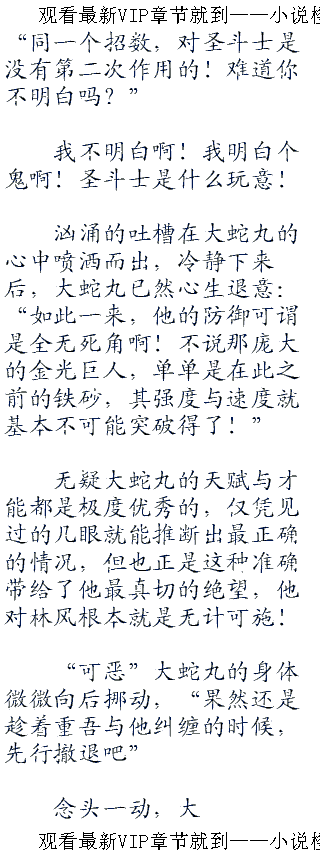 观看最新VIP章节就到——小说检
“同一个招数，对圣斗士是
没有第二次作用的！难道你
不明白吗？”
我不明白啊！我明白个
鬼啊！圣斗士是什么玩意！
汹涌的吐槽在大蛇丸的
心中喷洒而出，冷静下来
后，大蛇丸已然心生退意：
“如此一来，他的防御可谓
是全无死角啊！不说那庞大
的金光巨人，单单是在此之
前的铁砂，其强度与速度就
基本不可能突破得了！”
无疑大蛇丸的天赋与才
能都是极度优秀的，仅凭见
过的几眼就能推断出最正确
的情况，但也正是这种准确
带给了他最真切的绝望，他
对林风根本就是无计可施！
“可恶”大蛇丸的身体
微微向后挪动，“果然还是
趁着重吾与他纠缠的时候，
先行撤退吧”
念头一动，大
观看最新VIP章节就到——小说检